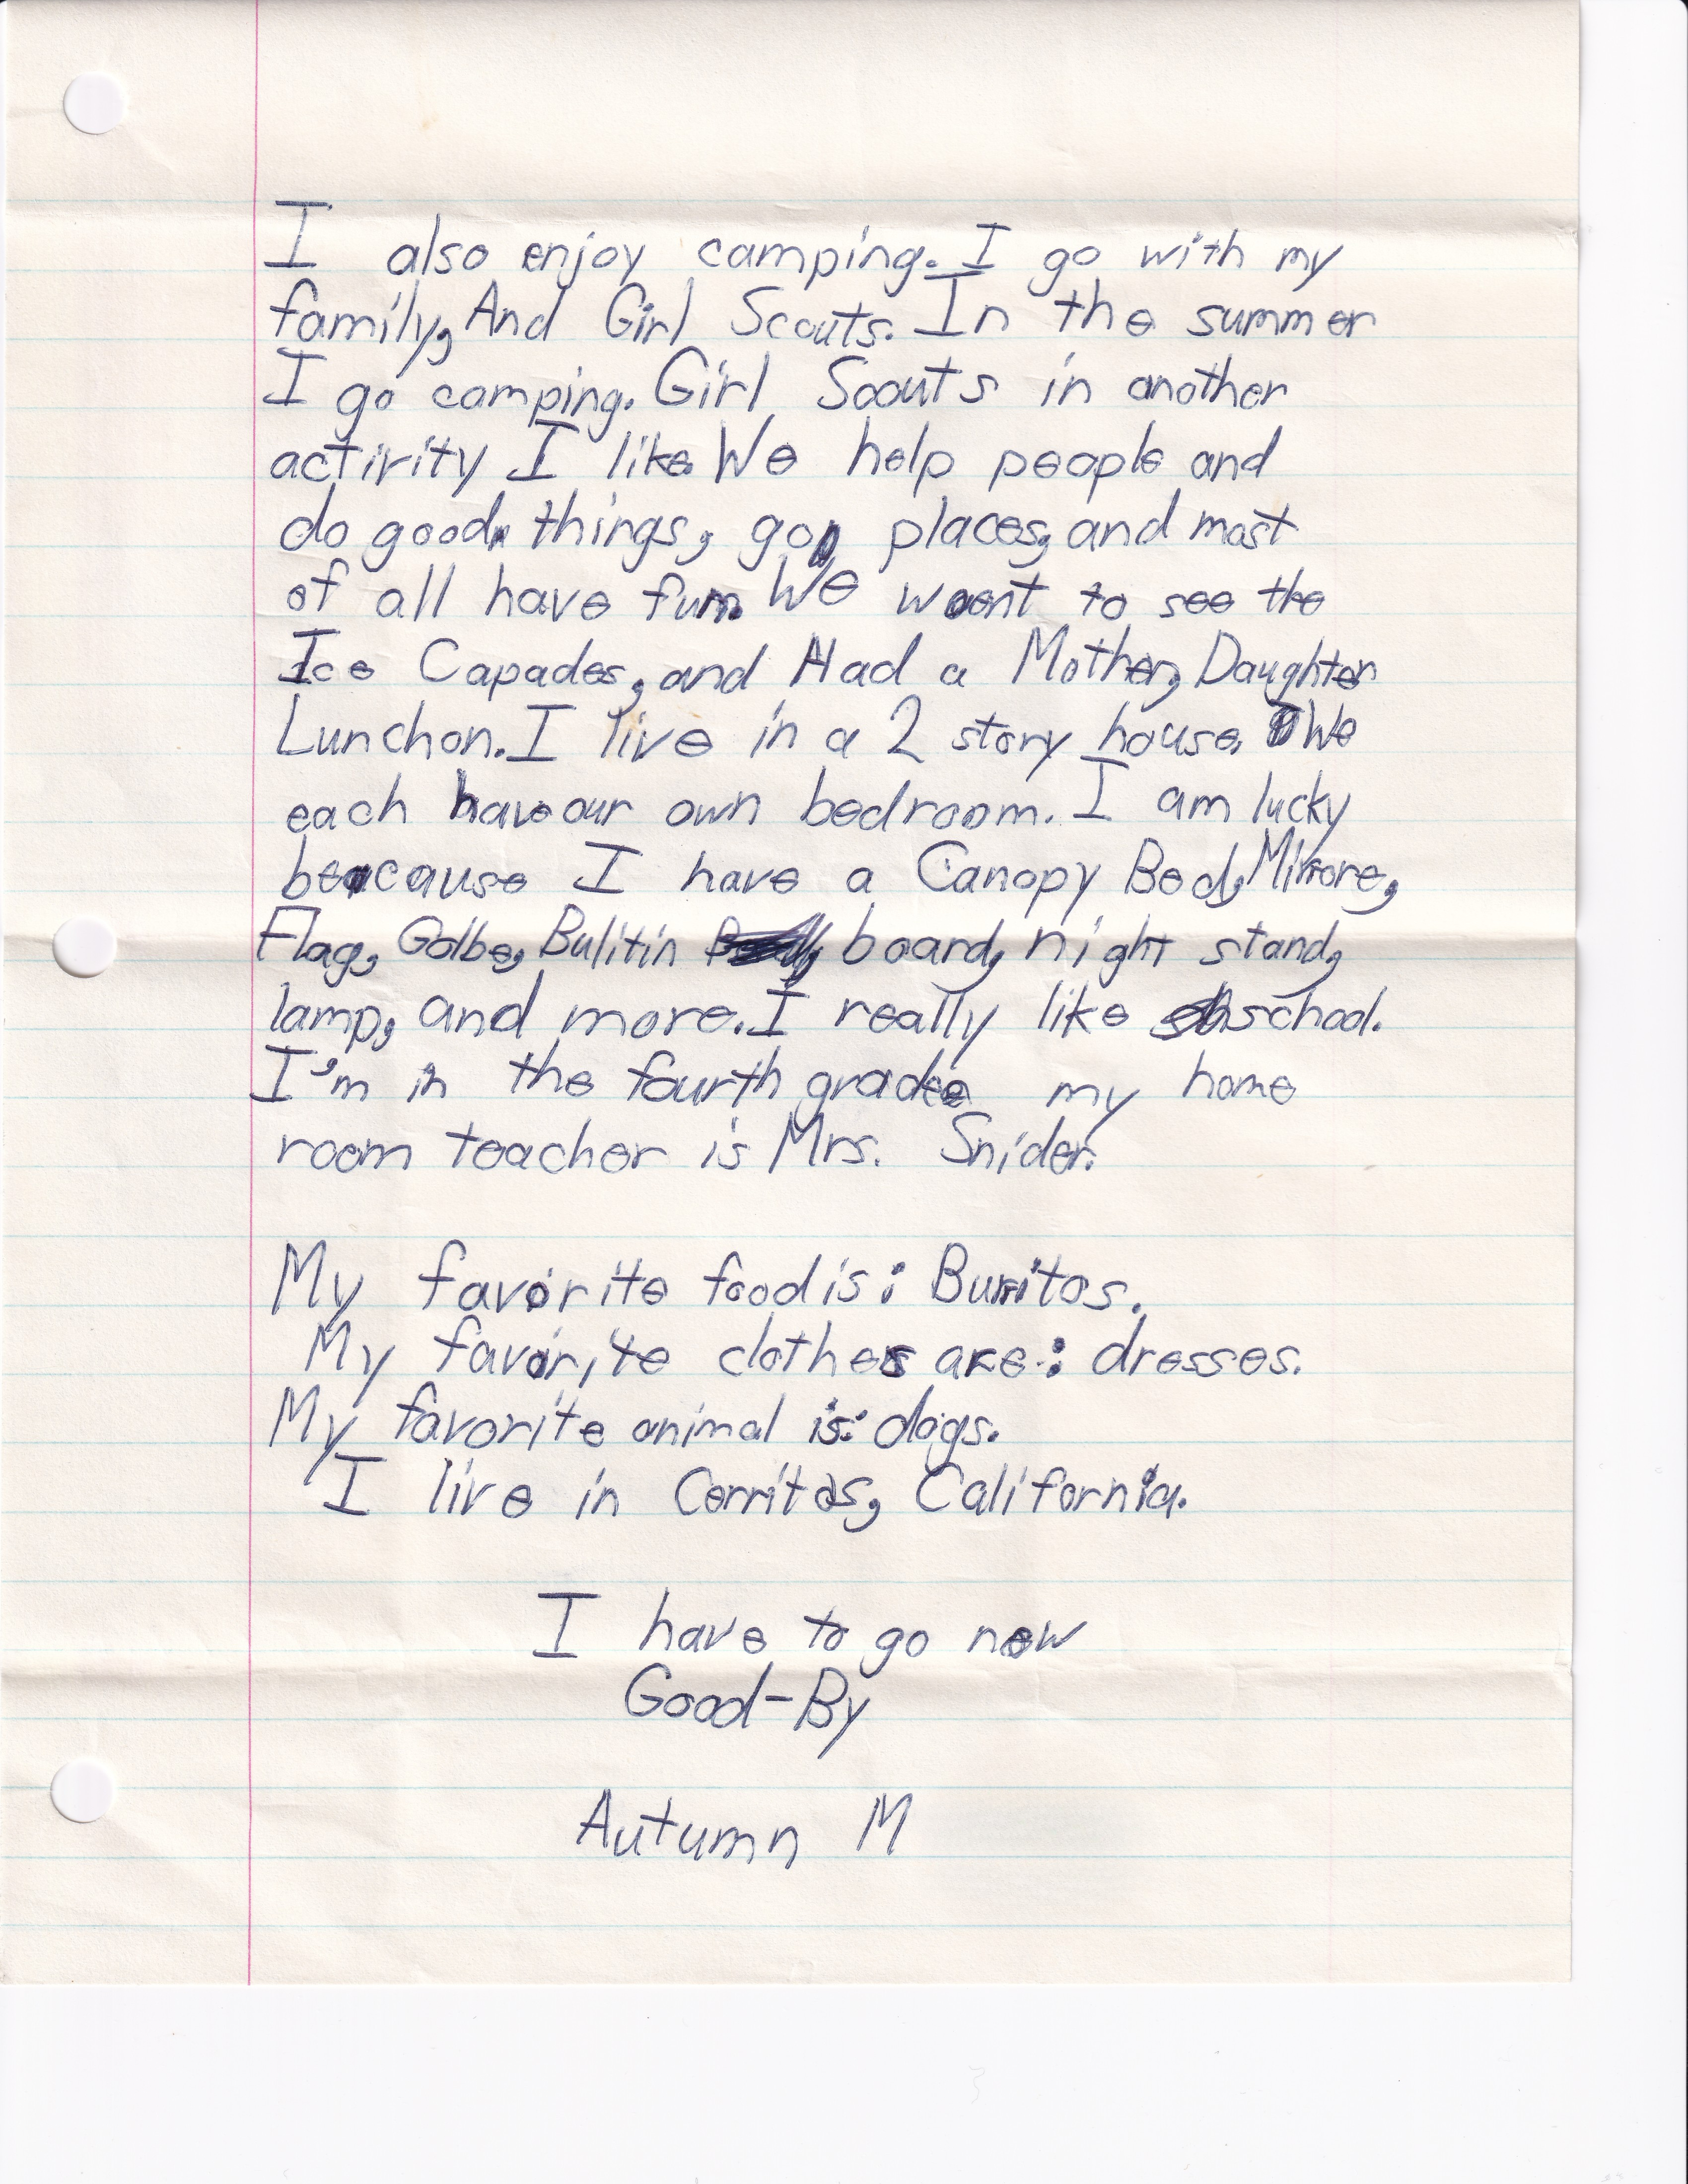 I also enjoy camping. I go with my
family, And Girl Scouts. In the summer
I go camping. Girl Scouts in another
activity I like. We help people and
do good things, go, places, and most
of all have fun. We went to see the
Ice Capades, and Had a Mother, Daughter
Lunchon. I live in a 2 story house. We
each have our own bedroom. I am lucky
beacause I have a Canopy Bed, Mirrore,
Flag, Golbe, Bulitin board, night stand,
lamp, and more. I really like school.
I'm in the fourth grade my home
room teacher is Mrs. Snider.
My favorite food is: Burritos.
My favorite clothes are: dresses.
My favorite animal is: dogs.
I live in Cerritos, California.
I have to go now
Good-By
Autumn M